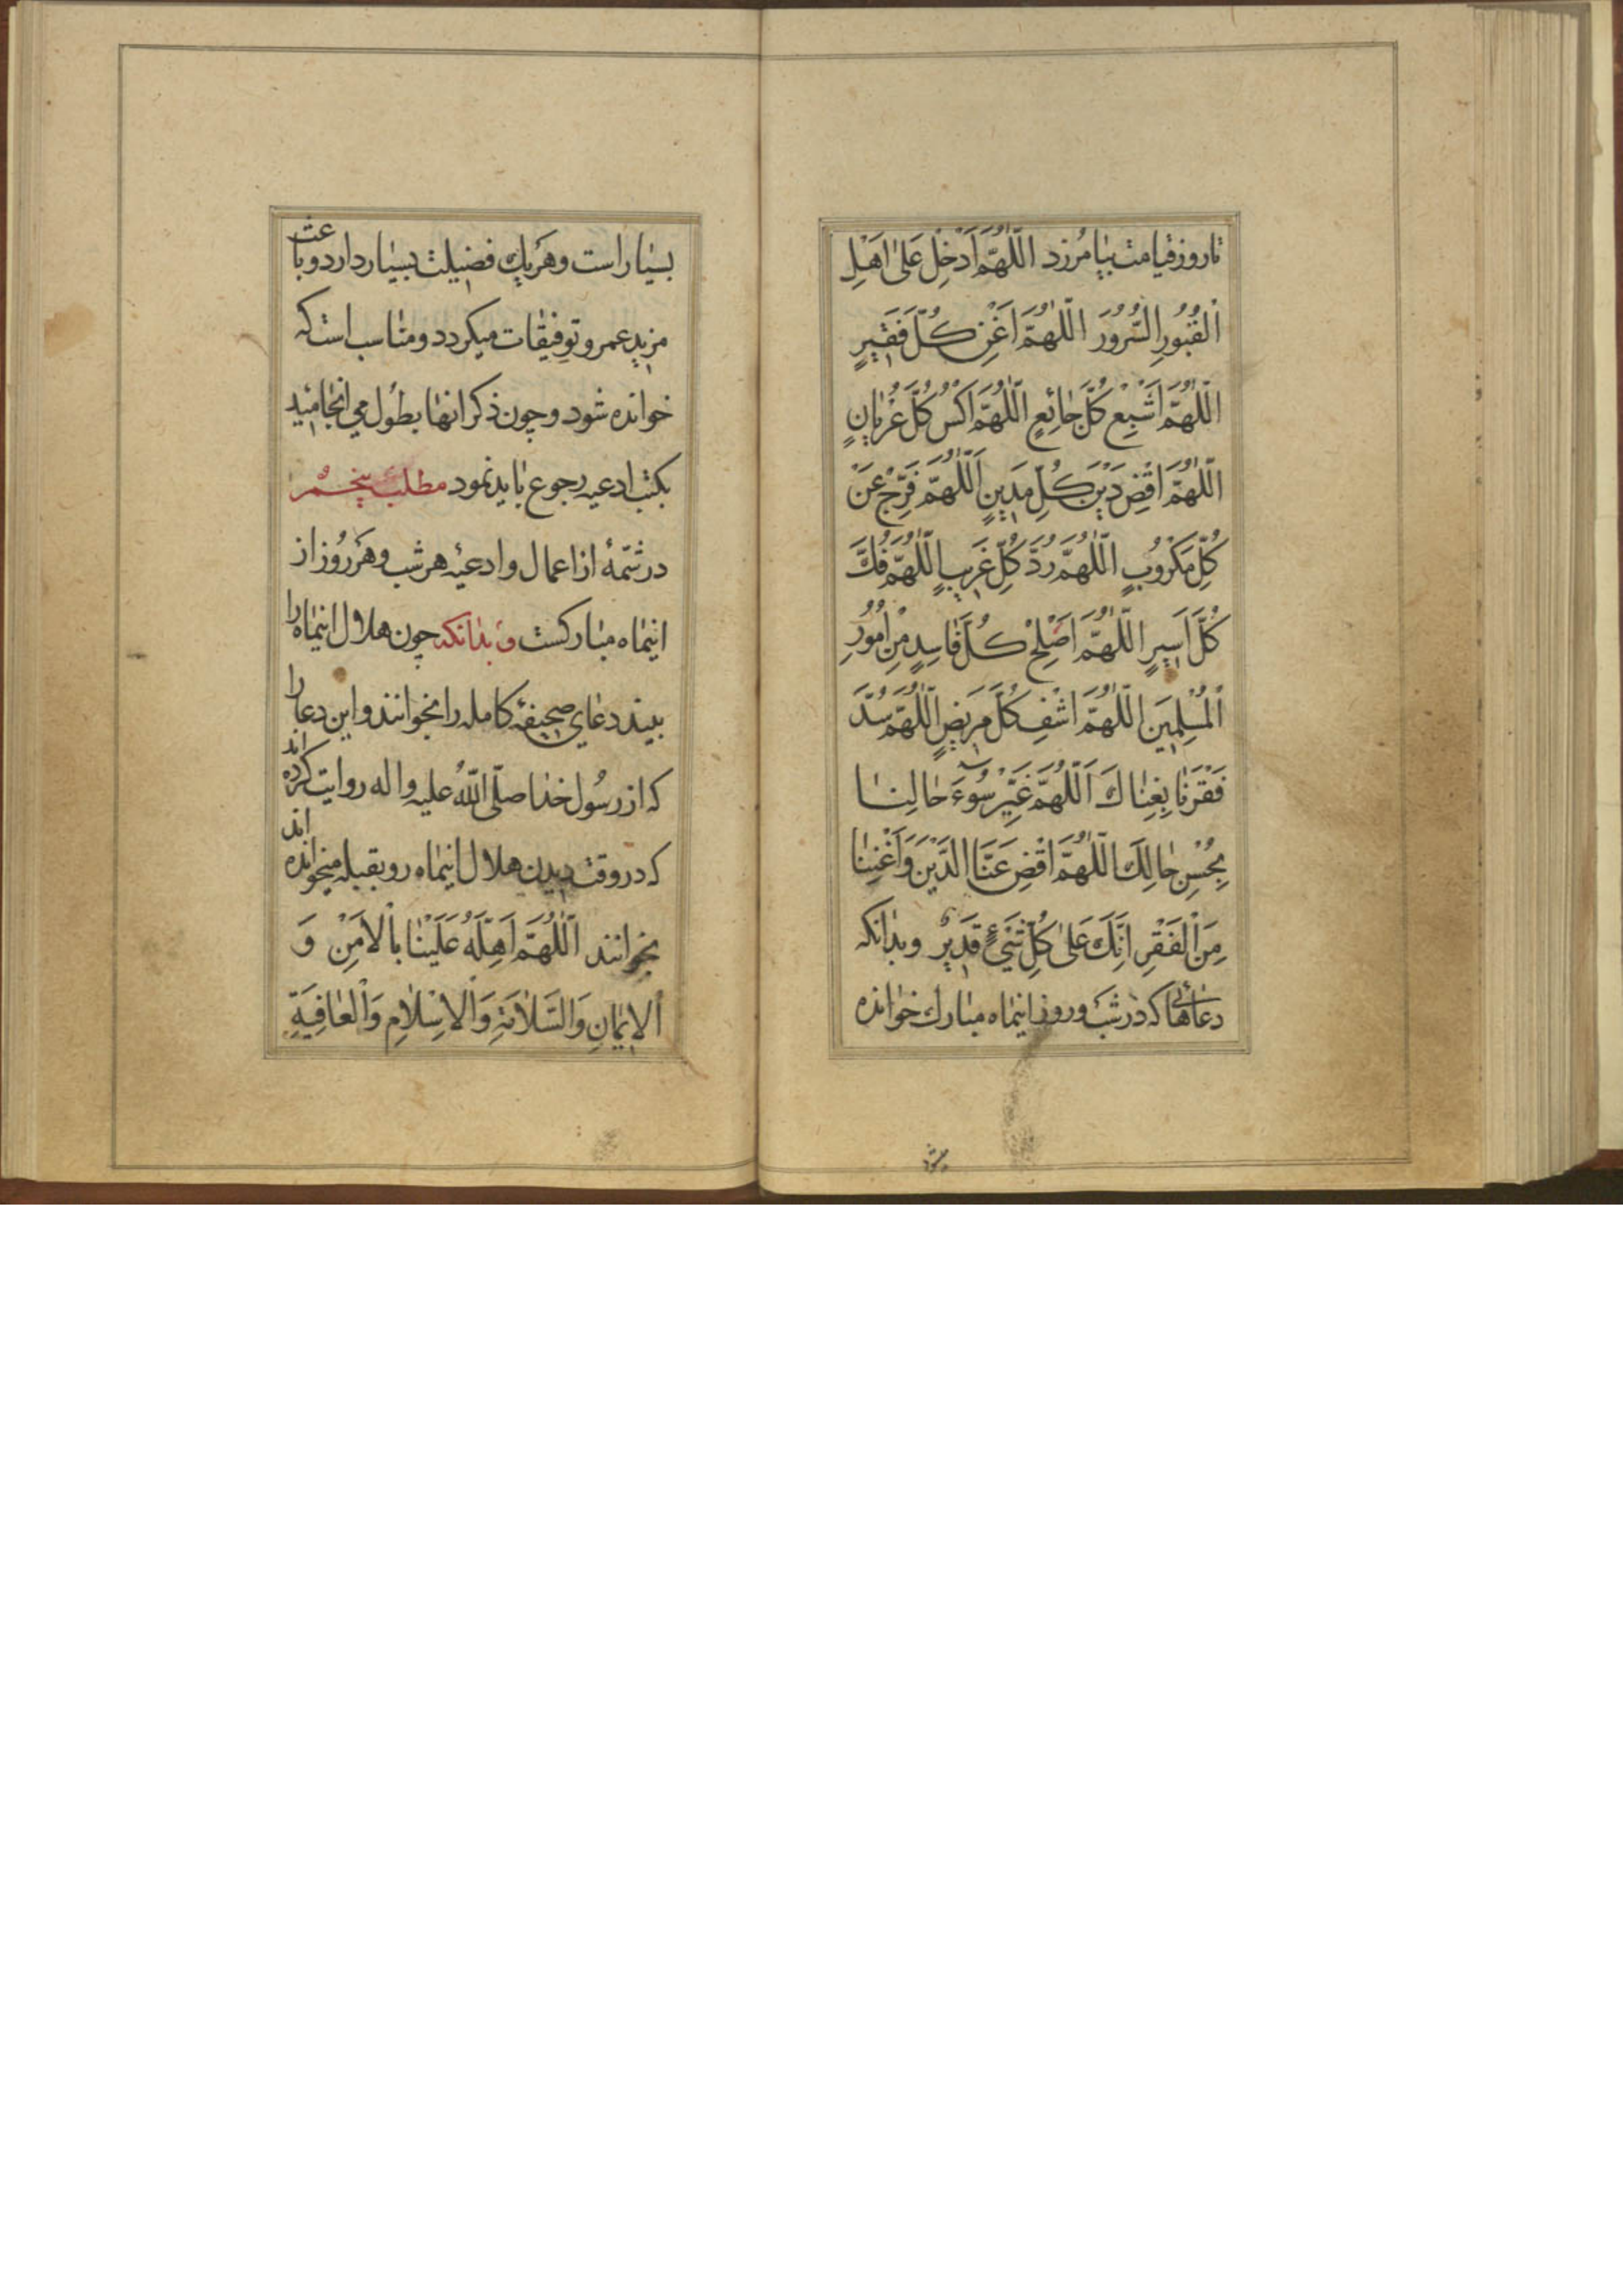 تا روز قیامت بیامرزد اَللّٰهُمَّ اَدْخِلْ عَلىٰ اَهْلِ
الْقُبُورِ السُّرُورَ اَللّٰهُمَّ اَغْنِ كُلَّ فَقِيرٍ
اَللّٰهُمَّ اَشْبِعْ كُلَّ جٰائِعٍ اَللّٰهُمَّ اكْسُ كُلَّ عُرْيٰانٍ
اَللّٰهُمَّ اقْضِ دَيْنَ كُلِّ مَدِينٍ اَللّٰهُمَّ فَرِّجْ عَنْ
كُلِّ مَكْرُوبٍ اَللّٰهُمَّ رُدَّ كُلَّ غَرِيبٍ اَللّٰهُمَّ فُكَّ
كُلَّ اَسِيرٍ اَللّٰهُمَّ اَصْلِحْ كُلَّ فٰاسِدٍ مِنْ اُمُورِ
الْمُسْلِمِينَ اَللّٰهُمَّ اشْفِ كُلَّ مَرِيضٍ اَللّٰهُمَّ سُدَّ
فَقْرَنٰا بِغِنٰاكَ اَللّٰهُمَّ غَيِّرْ سُوءَ حٰالِنٰا
بِحُسْنِ حٰالِكَ اَللّٰهُمَّ اقْضِ عَنَّا الدَّيْنَ وَاَغْنِنٰا
مِنَ الْفَقْرِ اِنَّكَ عَلىٰ كُلِّ شَيْءٍ قَدِيرٌ وبدانكه
دعاهائى كه در شب و روز اینماه مبارك خوانده
میشود
بسیار است و هر یك فضیلت بسیار دارد و باعث
مزید عمر و توفیقات میگردد و مناسب است که
خوانده شود و چون ذکر انها بطول می انجامید
بکتب ادعیه رجوع باید نمود مطلب پنجم
در شمّهٔ از اعمال و ادعیهٔ هر شب و هر روز از
اینماه مبارکست و بدانکه چون هلال اینماه را
بیند دعای صحیفهٔ کامله را بخوانند و این دعا را
که از رسول خدا صلّی اللّٰه علیه واله روایت کرده اند
که در وقت دیدن هلال اینماه رو بقبله میخوانده اند
بخوانند اَللّٰهُمَّ اَهِلَّهُ عَلَيْنٰا بِالْاَمْنِ وَ
الْاِيمٰانِ وَالسَّلٰامَةِ وَالْاِسْلٰامِ وَالْعٰافِيَةِ